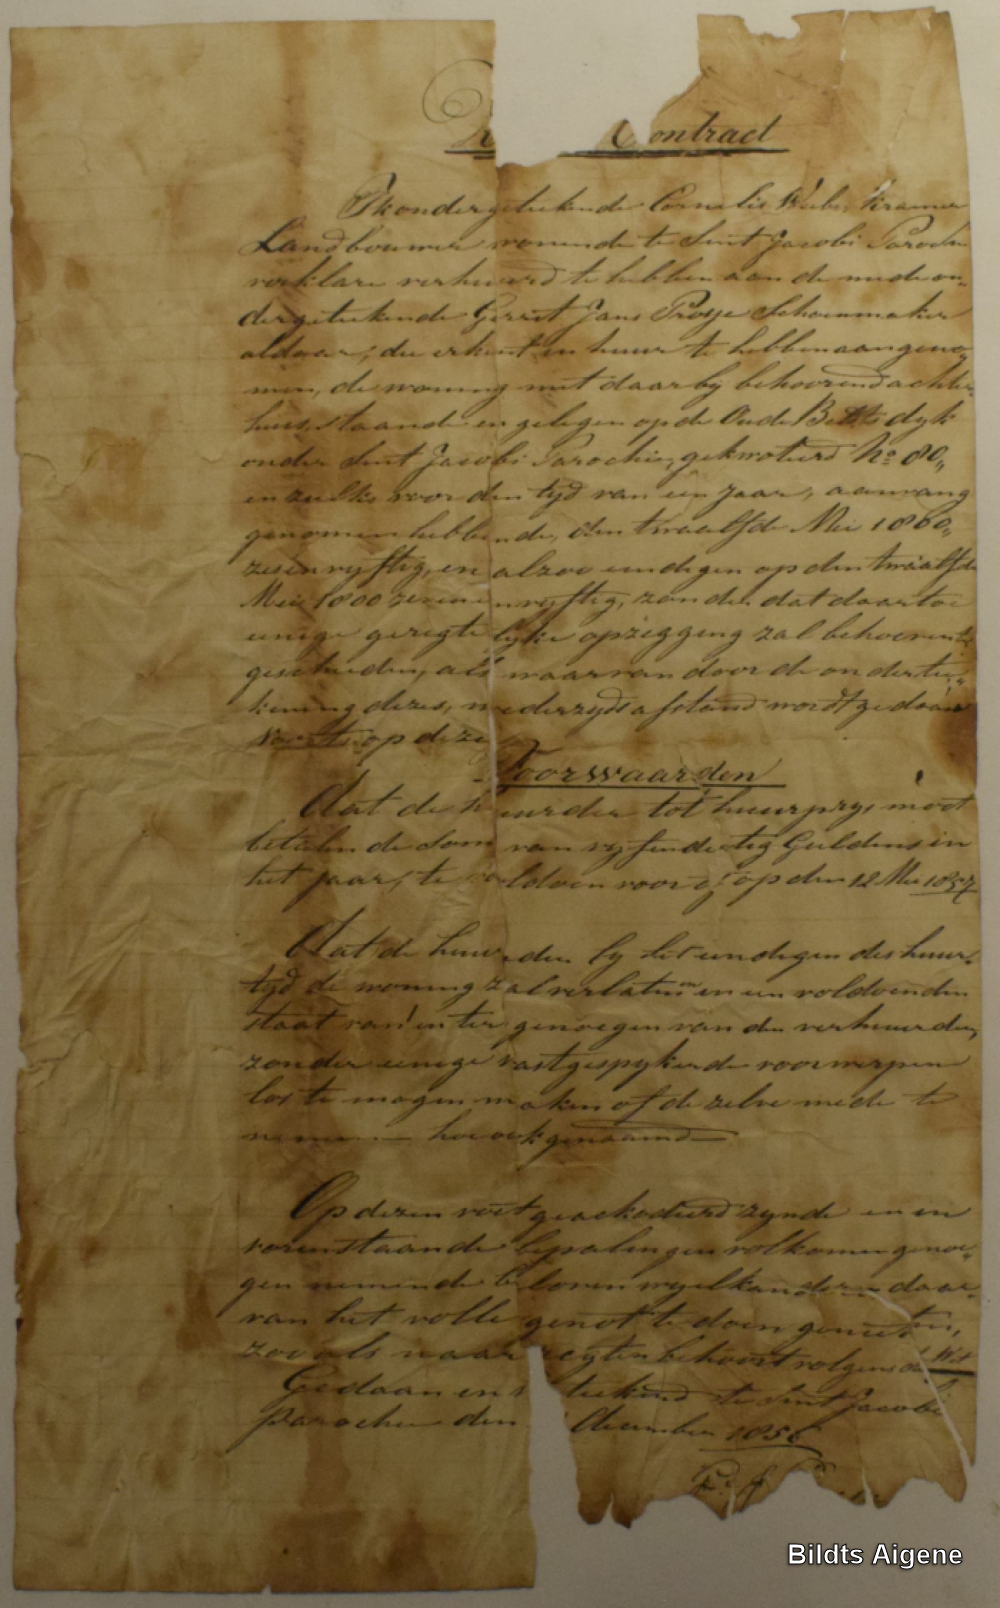 Contract
Ik ondergetekende Cornelis Kramer
Landbouwer wonende te Sint Jacobi Parochie
verklare verhuurd te hebben aan de mede on„
dergetekende Gerrit Jans Schoenmaker
aldaar, die erkent in huur te hebben aangeno„
men, de woning met daarby behoorend achter„
huis, staande en gelegen op de Oude Bildtdyk
onder Sint Jacobi Parochie, gekwoteerd No 80„
en zulks voor den tyd van een Jaar, aanvang
genomen hebbende, den twaalfde Mei 1800„
zesenvyftig, en alzoo eindigen op den twaalfde
Mei 1800 zevenenvyftig, zonder dat daartoe
eenige geregtelyke opzegging zal behoeven te
geschieden, als waarvan door de onderte„
kening dezes, wederzyds afstand wordt gedaan
op deze
Voorwaarden
Dat de huurder tot huurprys moet
betalen de som van vyfendertig Guldens in
het jaar, te voldoen voor of op den 12 Mei 1857
Dat de huurder by het eindigen des huur„
tyd de woning zal verlaten in een voldoenden
staat van en ter genoegen van den verhuurder,
zonder eenige vastgespykerde voorwerpen
los te mogen maken of dezelve mede te
nemen hoe ook genaamd
Op dezen voet geackodeerd zynde en in
vorenstaande bepalingen volkomen genoe„
gen nemende beloven wy elkanderen daar„
van het volle genot te doen genieten,
zoo als naar regten behoort volgens de Wet
Gedaan en tekend te Sint Jacobi
Parochie den December 1856
G. J.
Bildts Aigene